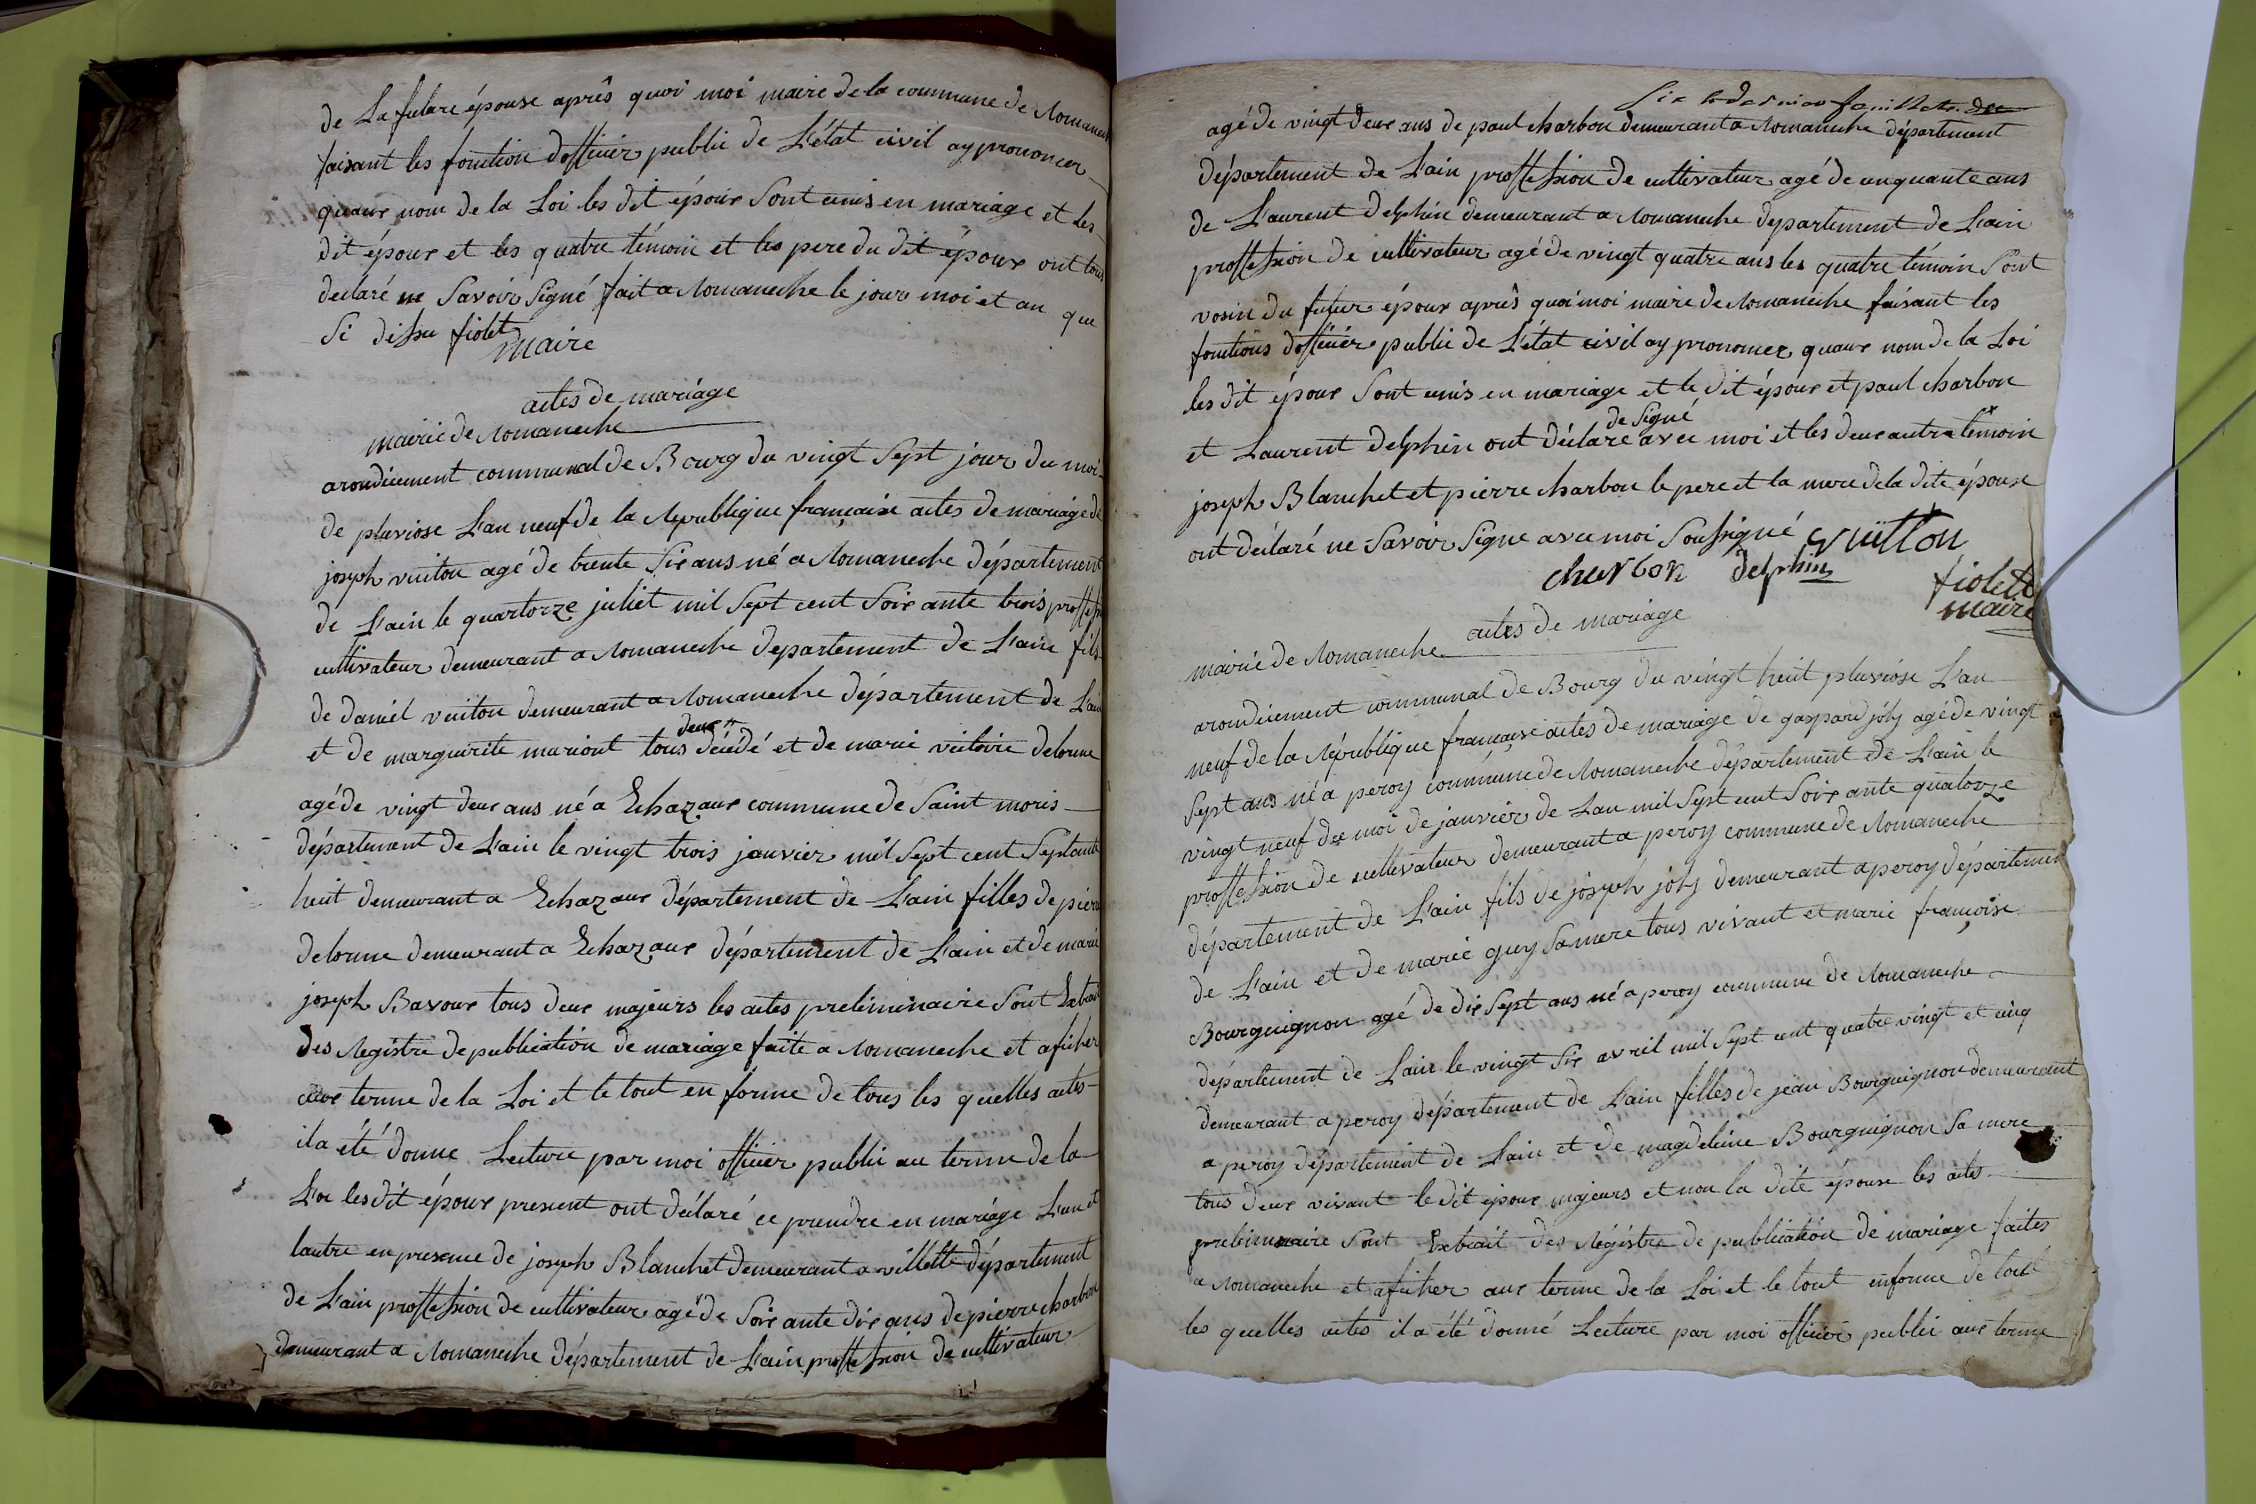 de La future épouse après quoi moi maire de la commune de Romaneche
faisant les fonction dofficier public de L'état civil ay prononcer
quaux nom de la Loi les dit époux Sont unis en mariage et les
dit époux et les quatre témoin et les pere du dit époux ont tous
declaré ne Savoir Signé fait a Romaneche le jour moi et an que
Si dessu fiolet
maire
actes de mariage
mairie de Romaneche
arondicement communal de Bourg du vingt Sept jour du moi
de pluviose L'an neuf de la République française actes de mariage de
joseph vuiton agé de trente Six ans né a Romaneche département
de L'ain le quartorze juliet mil Sept cent Soixante trois proffession
cultivateur demeurant a Romaneche departement de L'ain fils
de daniél vuiton demeurant a Romaneche département de L'ain
et de marguerite mariont tous deux décédé et de marie victoire delorme
agé de vingt deux ans né a Echazaux commune de Saint moris
département de L'ain le vingt trois janvier mil Sept cent Septante
heit demeurant a Echazaux département de L'ain filles de pierre
delorme demeurant a Echazaux département de L'ain et de marie
joseph Bavoux tous deux majeurs les actes preliminaire Sont Extrait
des Registre de publication de mariage faite a Romaneche et aficher
aux terme de la Loi et le tout en forme de tous les quelles actes
il a été donne Lecture par moi officier public au terme de la
Loi les dit époux present ont déclaré ce prendre en mariage L'un et
lautre en presence de joseph Blanchet demeurant a villette département
de L'ain proffession de cultivateur agé de Soixante dix ans de pierre charbon
demeurant a Romaneche département de L'ain proffession de cultivateur
Six le dernier feuillete
agé de vingt deux ans de paul charbon demeurant a Romaneche département
département de L'ain proffession de cultivateur agé de cinquante ans
de Laurent Delphin demeurant a Romaneche departement de L'ain
proffession de cultivateur agé de vingt quatre ans les quatre témoin Sont
vosin du futur époux après quoi moi maire de Romaneche faisant les
fonctions dofficier public de L'état civil ay prononcer quaux nom de la Loi
les dit époux Sont unis en mariage et le dit époux et paul charbon
et Laurent delphin ont déclaré de Signé avec moi et les deux autre témoin
joseph Blanchet et pierre charbon le pere et la mere de la dite épouse
ont déclaré ne Savoir Signe avec moi Soussigné vuitton
charbon delphin fiolette
maire
actes de mariage
mairie de Romaneche
arondicement communal de Bourg du vingt heit pluviose L'an
neuf de la République française actes de mariage de gaspard joly agé de vingt
Sept ans né a peroy commune de Romaneche département de L'ain le
vingt neuf du moi de janvier de L'an mil Sept cent Soixante quatorze
proffession de cultivateur demeurant a peroy commune de Romaneche
département de L'ain fils de joseph joly demeurant a peroy département
de L'ain et de marie guy Sa mere tous vivant et marie françoise
Bourguignon agé de dix Sept ans né a peroy commune de Romaneche
departement de L'ain le vingt Six avril mil Sept cent quatre vingt et cinq
demeurant a peroy département de L'ain filles de jean Bourguignon demeurant
a peroy département de L'ain et de magdeleine Bourguignon Sa mere
tous deux vivant le dit époux majeurs et non la dite épouse les actes
preliminaire Sont Extrait des Régistre de publication de mariage faites
a Romaneche et aficher aux terme de la Loi et le tout enforme de tout
les quelles actes il a été donné Lecture par moi officier public aux terme